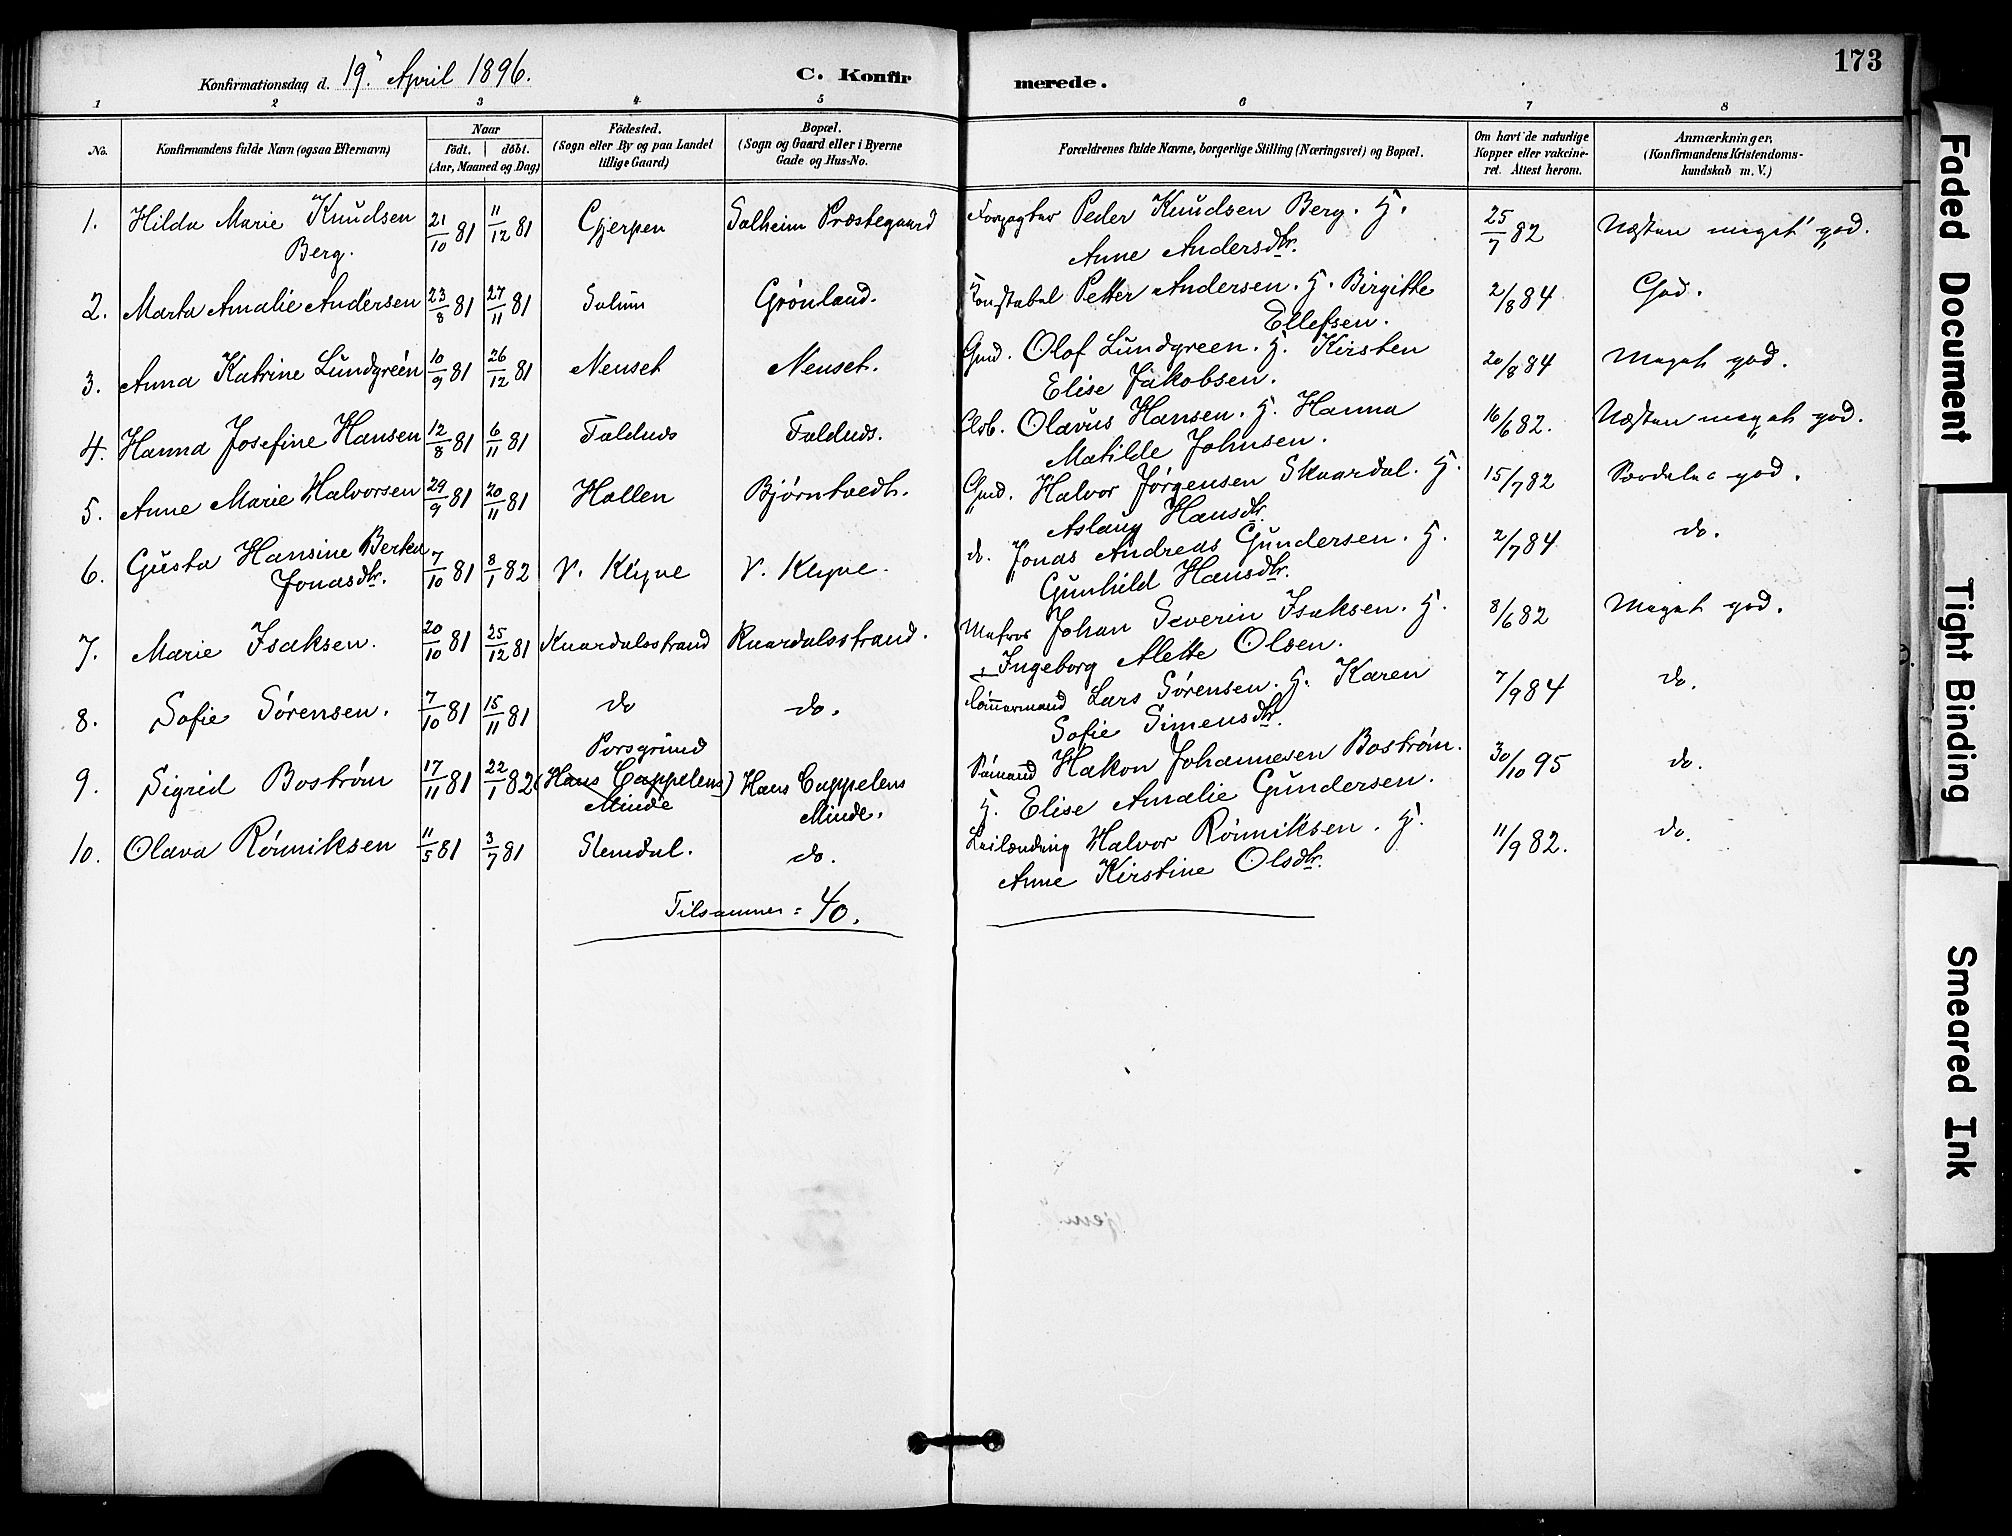 Konfirmationsdag d. 19' April 1896.
C. Konfirmerede.
173
1 2 3 4 5 6 7 8
No.
Konfirmandens fulde Navn (ogsaa Efternavn)
Naar
födt. | döbt.
(Aar, Maaned og Dag)
Födested.
(Sogn eller By og paa Landet
tillige Gaard)
Bopæl.
(Sogn og Gaard eller i Byerne
Gade og Hus-No.
Forældrenes fulde Navne, borgerlige Stilling (Næringsvei) og Bopæl.
Om havt de naturlige
Kopper eller vakcine-
ret. Attest herom.
Anmærkninger,
(Konfirmandens Kristendoms-
kundskab m. V.)
1. Hilda Marie Knudsen 21/10 81 11/12 81 Gjerpen Solheim Præstegaard Forpagter Peder Knudsen Berg. H. 25/7 82 Næsten meget god.
Berg. Anne Andersdtr.
2. Marta Amalie Andersen 23/8 81 27/11 81 Solum Grønland. Konstabel Petter Andersen. H. Birgitte 2/8 84 God.
Ellefsen.
3. Anna Katrine Lundgreen 10/9 81 26/12 81 Nenset Nenset. Gmd. Olof Lundgreen. H. Kirsten 20/8 84 Meget god.
Elise Jakobsen.
4. Hanna Josefine Hansen 12/8 81 6/11 81 Faldnes Faldnes. Arb. Olavus Hansen. H. Hanna 16/6 82. Næsten meget god.
Matilde Johnsen.
5. Anne Marie Halvorsen 29/9 81 20/11 81 Hollen Bjørntvedt. Gmd. Halvor Jørgensen Skaardal. H. 15/7 82 Særdeles god.
Aslaug Hansdtr.
6. Gusta Hansine Berka 7/10 81 8/1 82 V. Klyve V. Klyve. do. Jonas Andreas Gundersen. H. 2/7 84 do.
Jonasdtr. Gunhild Hansdtr.
7. Marie Isaksen. 20/10 81 25/12 81 Knardalsstrand Knardalsstrand. Matros Johan Severin Isaksen. H. 8/6 82 Meget god.
Ingeborg Alette Olsen.
8. Sofie Sørensen. 7/10 81 15/11 81 do do. Tømmermand Lars Sørensen. H. Karen 7/9 84 do.
Sofie Simensdtr.
9. Sigrid Bostrøm 17/11 81 22/1 82 Porsgrund (Hans Cappelens) Minde Hans Cappelens Minde. Sømand Hakon Johannesen Bostrøm. 30/10 95 do.
H. Elise Amalie Gundersen.
10. Olava Rønniksen 11/5 81 3/7 81 Stendal. do. Leilænding Halvor Rønniksen. H. 11/9 82. do.
Anne Kirstine Olsdtr.
Tilsammen = 40.
Faded Document
Tight Binding
Smeared Ink